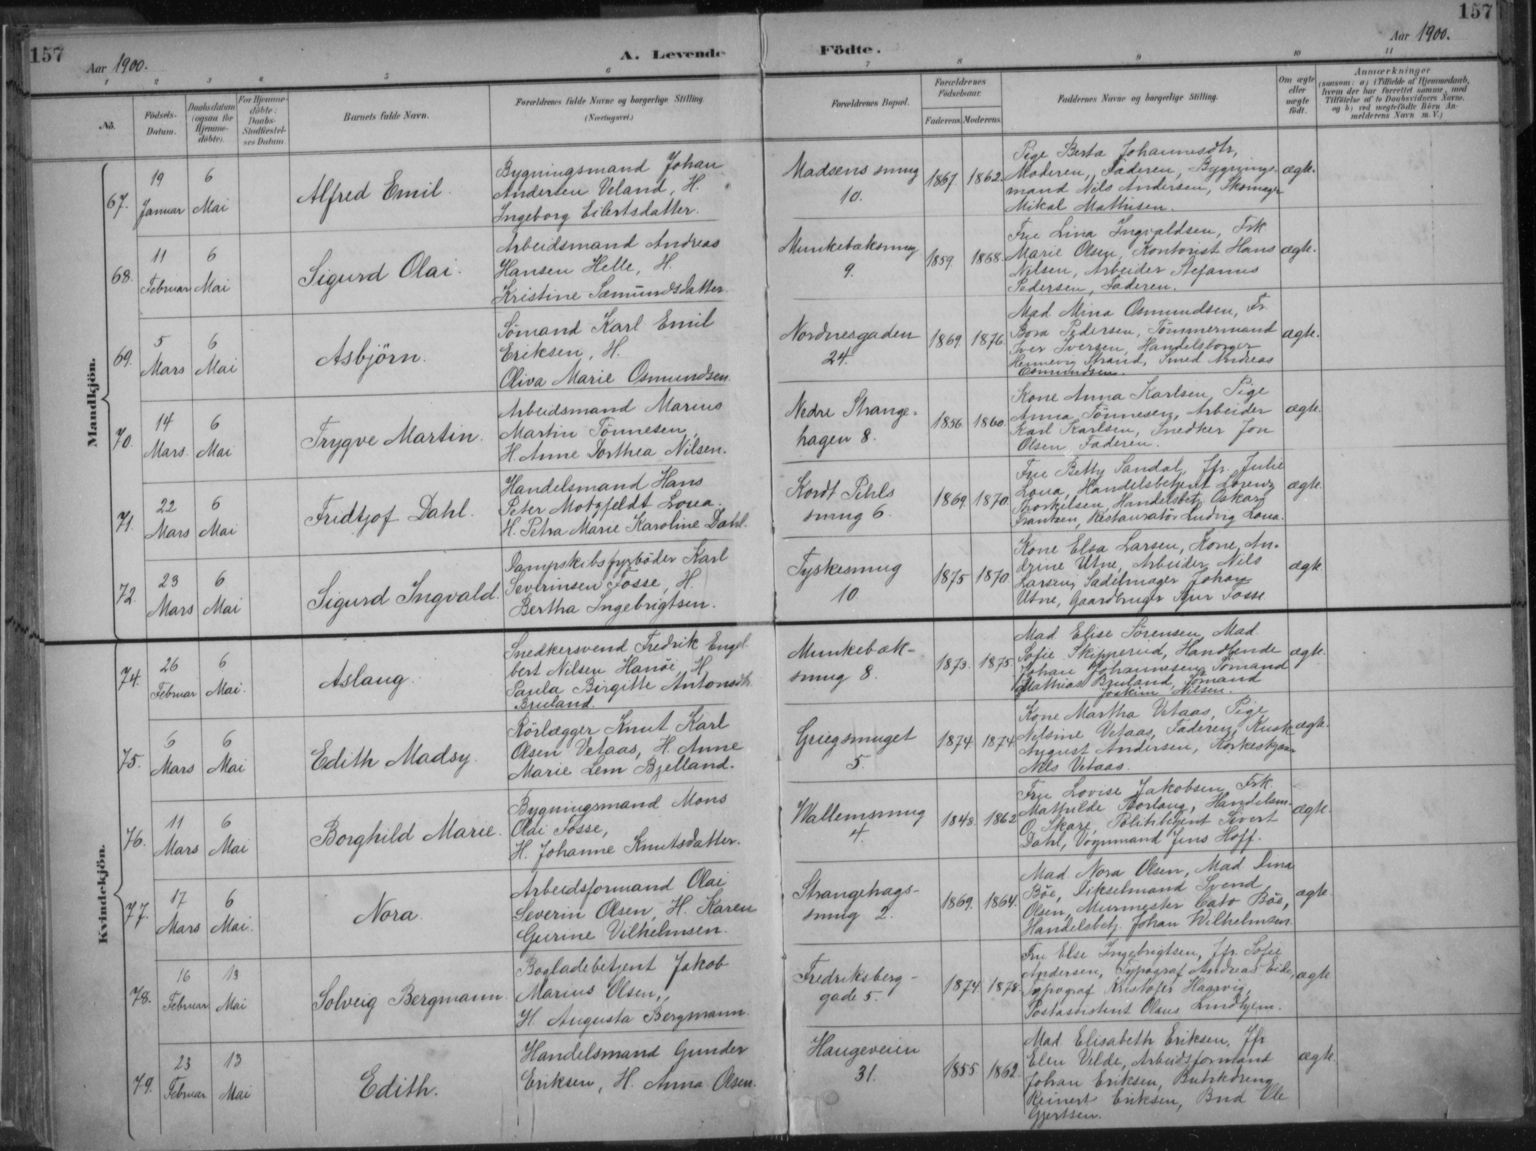 157
Aar 1900.
A. Levende
Födte.
157
Aar 1900.
1 2 3 4 5 6 7 8 9 10 11
No.
Födsels-
Datum.
Daabsdatum
(ogsaa for
Hjemme-
döbte).
For Hjemme-
döbte:
Daabs-
Stadfæstel-
ses Datum
Barnets fulde Navn.
Forældrenes fulde Navne og borgerlige Stilling
(Næringsvei.)
Forældrenes Bopæl.
Forældrenes
Födselsaar.
Faderens. Moderens.
Faddernes Navne og borgerlige Stilling.
Om ægte
eller
uægte
födt.
Anmærkninger
Mandkjön.
67.
19
Januar
6
Mai
Alfred Emil.
Bygningsmand Johan
Andersen Veland, H.
Ingeborg Eilertsdatter.
Madsens smug
10.
1867 1862
Pige Berta Johannesdtr,
Moderen, Faderen, Bygnings-
mand Nils Andersen, Skomagr
Mikal Mathisen.
ægte.
68.
11
Februar
6
Mai
Sigurd Olai.
Arbeidsmand Andreas
Hansen Helle, H.
Kristine Sæmundsdatter.
Munkebæksmug
9.
1859 1868.
Fru Lina Ingvaldsen, Frk
Marie Olsen, Kontorist Hans
Nilsen, Arbeider Stefanus
Pedersen, Faderen.
ægte.
69.
5
Mars
6
Mai
Asbjörn.
Sömand Karl Emil
Eriksen, H.
Oliva Marie Osmundsen.
Nordnesgaden
24.
1869 1876.
Mad Mina Osmundsen, Fr.
Bora Pedersen, Tömmermand
Iver Iversen, Handelsborger
Strand, Smed Andreas
Osmundsen.
ægte.
70.
14
Mars.
6
Mai
Trygve Martin.
Arbeidsmand Marius
Martin Tönnesen,
H. Anne Dorthea Nilsen.
Nedre Strange-
hagen 8.
1856 1860.
Kone Anna Karlsen, Pige
Anna Tönnesen, Arbeider
Karl Karlsen, Snedker Jon
Olsen, Faderen.
ægte.
71.
22
Mars
6
Mai
Fridtjof Dahl.
Handelsmand Hans
Peter Motzfeldt Loua.
H. Petra Marie Karoline Dahl.
Kordt Pihls
smug 6.
1869. 1870.
Frue Betty Sandal, Jfr. Julie
Loua, Handelsbetjent Lorenz
Thorkilsen, Handelsbetj. Oskar
Franken, Restauratör Ludvig Loua.
ægte.
72.
23
Mars
6
Mai
Sigurd Ingvald.
Dampskibsfyrböder Karl
Severinsen Fosse, H.
Bertha Ingebrigtsen.
Tyskesmug
10
1875 1870
Kone Elsa Larsen, Kone An-
drine Utne, Arbeider Nils
Larsen, Sadelmager Johan
Utne, Gaardbruger Sjur Fosse
ægte.
Kvindekjön.
74.
26
Februar
6
Mai.
Aslaug.
Snedkersvend Fredrik Engel
bert Nilsen Hanöe, H.
Paula Birgitte Antonsdtr.
Bruland.
Munkebæk-
smug 8.
1873. 1875.
Mad Elise Sörensen, Mad
Sofie Skipperud, Handlende
Johan Johannesen, Sömand
Mathias Bruland, Sömand
Joakim Nilsen.
ægte.
75.
6
Mars
6
Mai
Edith Madsy.
Rörlægger Knut Karl
Olsen Vetaas, H. Anne
Marie Lem Bjelland.
Griegsmuget
5.
1874 1874
Kone Martha Vetaas, Pige
Nilsine Vetaas, Faderen, Kusk
August Andersen,
Nils Vetaas.
ægte.
76.
11
Mars
6
Mai
Borghild Marie.
Bygningsmand Mons
Olai Fosse,
H. Johanne Knutsdatter.
Wallemsmug
4.
1848. 1862
Fru Lovise Jakobsen, Frk
Mathilde Horlang, Handelsm.
O. Skare, Politibetjent Sivert
Dahl, Vognmand Jens Hoff.
ægte.
77.
17
Mars
6
Mai.
Nora.
Arbeidsformand Olai
Severin Olsen, H. Karen
Gurine Vilhelmsen.
Strangehags-
smug 2.
1869. 1864.
Mad Nora Olsen, Mad Lina
Böe, Dikselmand Svend
Olsen, Murmester Cato Böe,
Handelsbetj. Johan Wilhelmsen.
ægte
78.
16
Februar
13
Mai
Solveig Bergmann.
Bogladebetjent Jakob
Marius Olsen,
H. Augusta Bergmann.
Fredriksberg-
gade 5.
1874. 1878.
Fru Else Ingebrigtsen, Jfr. Sofie
Andersen, Typograf Andreas Eide,
Typograf Kristofer Hagsvig,
Postassistent Olaus Lindhjem.
ægte
79.
23
Februar
13
Mai
Edith.
Handelsmand Gunder
Eriksen, H. Anna Olsen.
Haugeveien
31.
1855 1862.
Mad Elisabeth Eriksen, Jfr
Elen Velde, Arbeidsformand
Johan Eriksen, Butikdreng
Reinert Eriksen, Bud Ole
Gjertsen.
ægte.